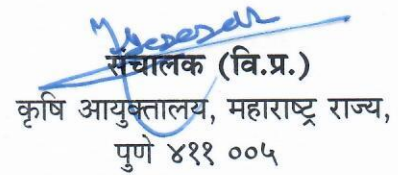 संचालक (वि.प्र.)
कृषि आयुक्तालय, महाराष्ट्र राज्य,
पुणे ४११ ००५